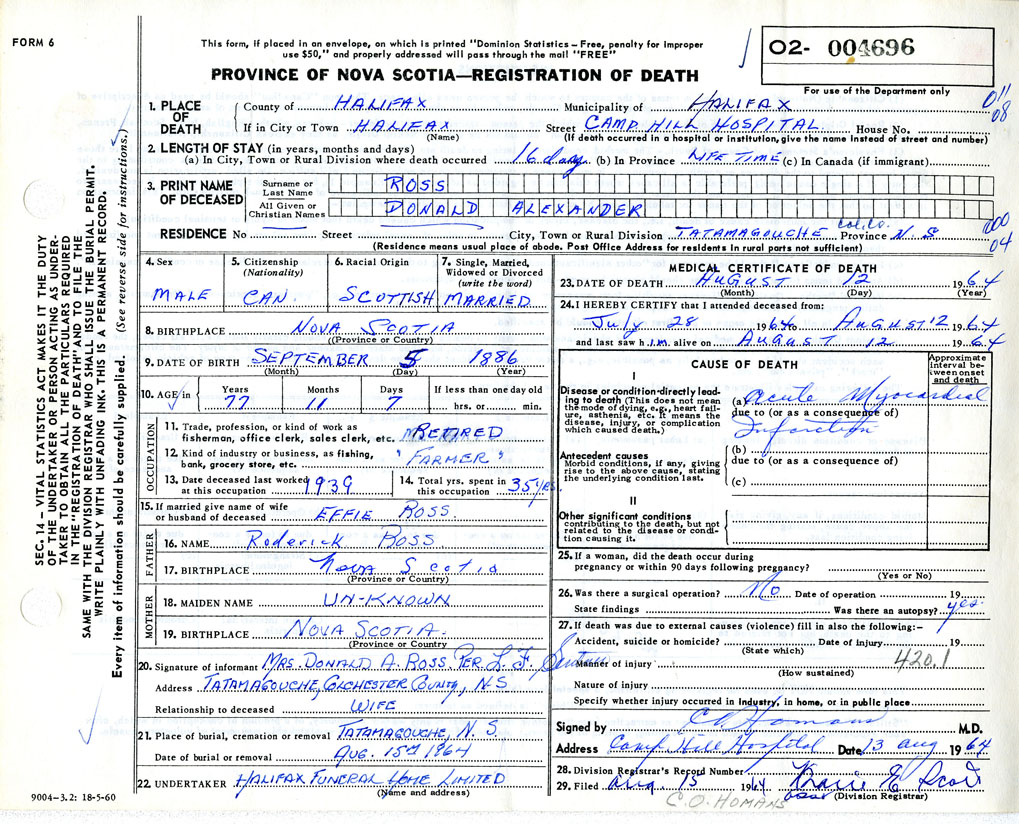 FORM 6
This form, if placed in an envelope, on which is printed "Dominion Statistics – Free, penalty for improper
use $50," and properly addressed will pass through the mail "FREE"
O2- 004696
For use of the Department only
PROVINCE OF NOVA SCOTIA—REGISTRATION OF DEATH
SEC. 14 – VITAL STATISTICS ACT MAKES IT THE DUTY
OF THE UNDERTAKER OR PERSON ACTING AS UNDER-
TAKER TO OBTAIN ALL THE PARTICULARS REQUIRED
IN THE "REGISTRATION OF DEATH" AND TO FILE THE
SAME WITH THE DIVISION REGISTRAR WHO SHALL ISSUE THE BURIAL PERMIT.
WRITE PLAINLY WITH UNFADING INK. THIS IS A PERMANENT RECORD.
Every item of information should be carefully supplied. (See reverse side for instructions.)
1. PLACE OF DEATH
County of HALIFAX Municipality of HALIFAX 011
08
If in City or Town HALIFAX Street CAMP HILL HOSPITAL House No.
(Name) (If death occurred in a hospital or institution, give the name instead of street and number)
2. LENGTH OF STAY (in years, months and days)
(a) In City, Town or Rural Division where death occurred 16 days (b) In Province LIFE TIME (c) In Canada (if immigrant)
3. PRINT NAME OF DECEASED
Surname or Last Name ROSS
All Given or Christian Names DONALD ALEXANDER
RESIDENCE No Street City, Town or Rural Division TATAMAGOUCHE Col. Co. Province N. S 000
04
(Residence means usual place of abode. Post Office Address for residents in rural parts not sufficient)
4. Sex
MALE
5. Citizenship
(Nationality)
CAN.
6. Racial Origin
SCOTTISH
7. Single, Married,
Widowed or Divorced
(write the word)
MARRIED
8. BIRTHPLACE NOVA SCOTIA
((Province or Country)
9. DATE OF BIRTH SEPTEMBER 5 1886
(Month) (Day) (Year)
10. AGE in
Years Months Days If less than one day old
77 11 7 hrs. or min.
OCCUPATION
11. Trade, profession, or kind of work as
fisherman, office clerk, sales clerk, etc. RETIRED
12. Kind of industry or business, as fishing,
bank, grocery store, etc. "FARMER"
13. Date deceased last worked
at this occupation 1939
14. Total yrs. spent in
this occupation 35 yrs.
15. If married give name of wife
or husband of deceased EFFIE ROSS.
FATHER
16. NAME Roderick ROSS
17. BIRTHPLACE Nova Scotia
(Province or Country)
MOTHER
18. MAIDEN NAME UN-KNOWN
19. BIRTHPLACE NOVA SCOTIA.
(Province or Country)
20. Signature of informant MRS. DONALD A. ROSS. PER L. F.
Address TATAMAGOUCHE, COLCHESTER COUNTY, N.S
Relationship to deceased WIFE
21. Place of burial, cremation or removal TATAMAGOUCHE, N. S.
Date of burial or removal AUG. 15th 1964
22. UNDERTAKER HALIFAX FUNERAL HOME LIMITED
(Name and address)
9004–3.2: 18-5-60
MEDICAL CERTIFICATE OF DEATH
23. DATE OF DEATH AUGUST 12 1964
(Month) (Day) (Year)
24. I HEREBY CERTIFY that I attended deceased from:
July 28 1964 to AUGUST 12 1964
and last saw h.im. alive on AUGUST 12 1964
CAUSE OF DEATH
Approximate
interval be-
tween onset
and death
I
Disease or condition directly lead-
ing to death (This does not mean
the mode of dying, e.g., heart fail-
ure, asthenia, etc. It means the
disease, injury, or complication
which caused death.)
(a) Acute Myocardial
due to (or as a consequence of)
Infarction
Antecedent causes
Morbid conditions, if any, giving
rise to the above cause, stating
the underlying condition last.
(b)
due to (or as a consequence of)
(c)
II
Other significant conditions
contributing to the death, but not
related to the disease or condi-
tion causing it.
25. If a woman, did the death occur during
pregnancy or within 90 days following pregnancy?
(Yes or No)
26. Was there a surgical operation? No Date of operation 19
State findings Was there an autopsy? yes.
27. If death was due to external causes (violence) fill in also the following:–
Accident, suicide or homicide? Date of injury 19
(State which)
Manner of injury 420.1
(How sustained)
Nature of injury
Specify whether injury occurred in Industry, in home, or in public place
Signed by C O Homans M.D.
Address Camp Hill Hospital Date 13 aug 1964
28. Division Registrar's Record Number
29. Filed aug. 15 1964
(Division Registrar)
C. O. HOMANS